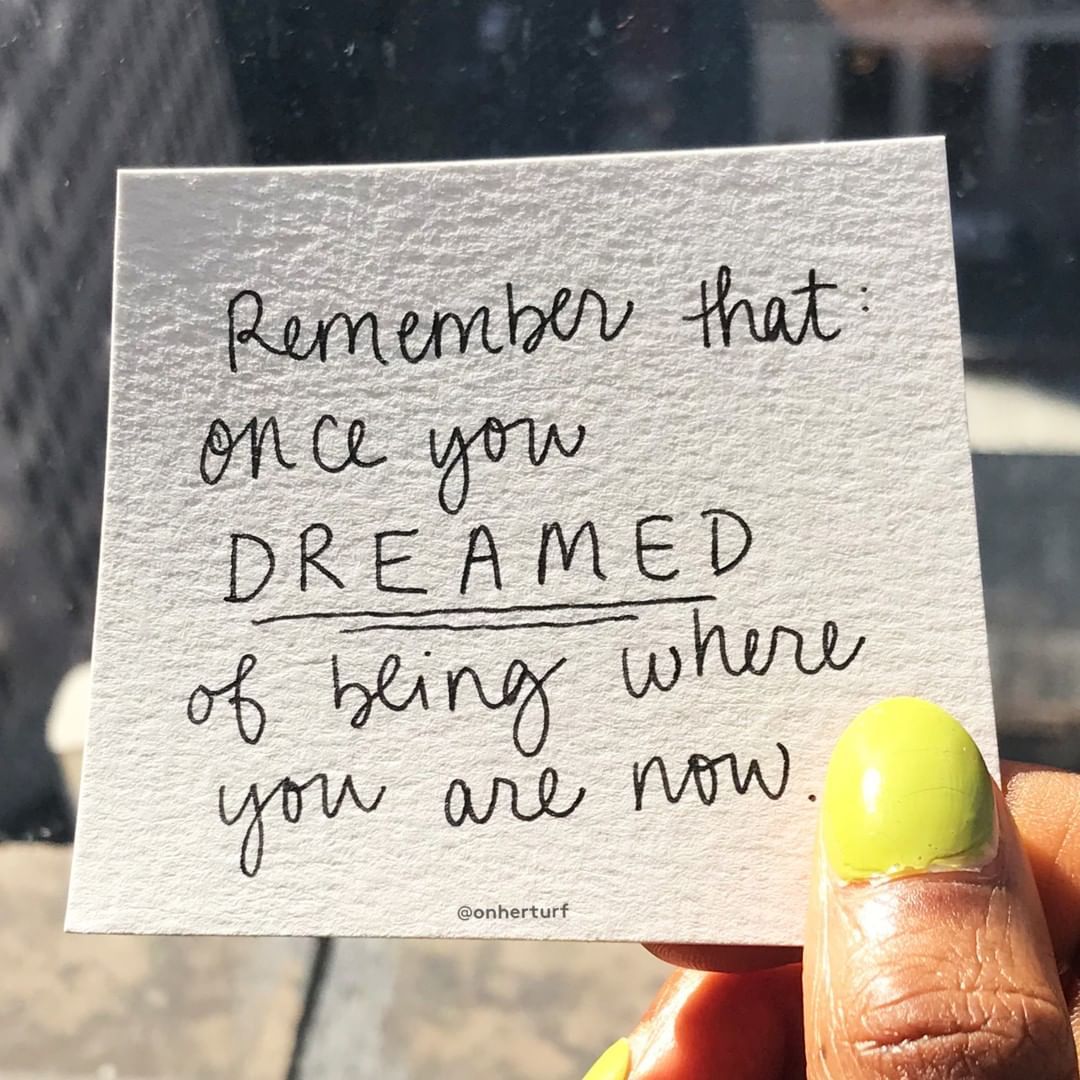 Remember that:
once you
DREAMED
of being where
you are now.
@onherturf